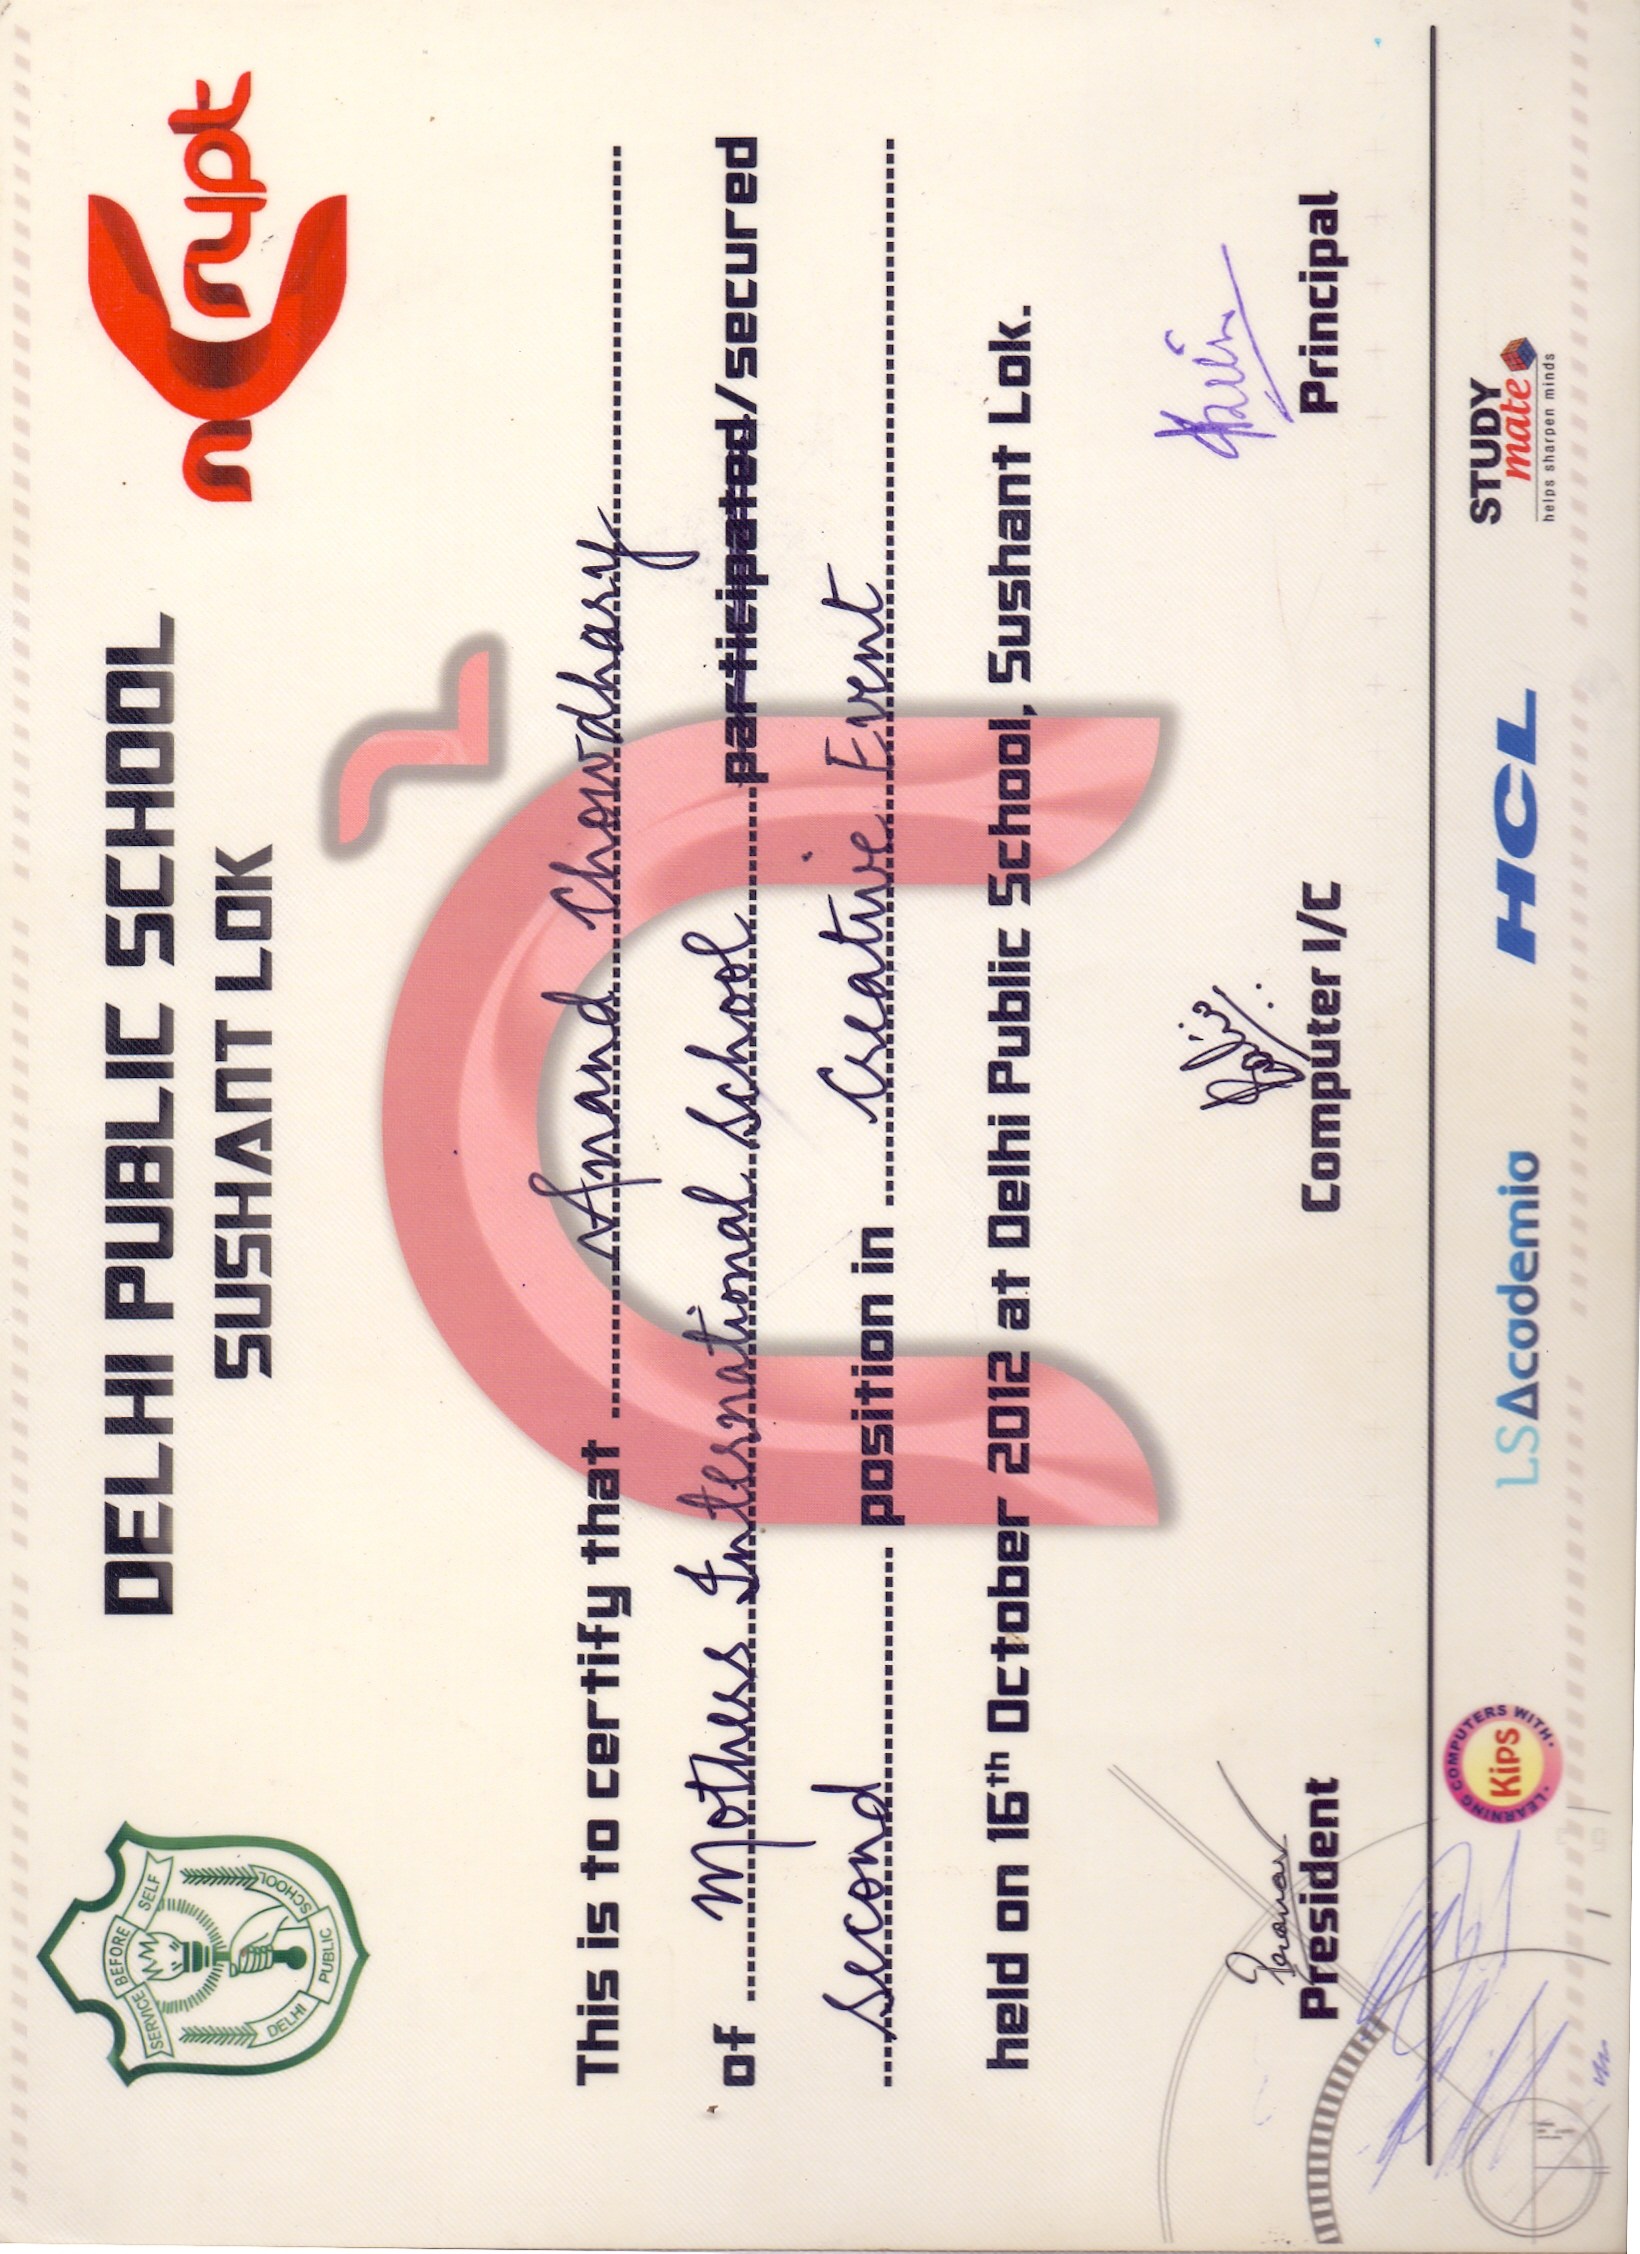 SERVICE BEFORE SELF
DELHI PUBLIC SCHOOL
DELHI PUBLIC SCHOOL
SUSHANT LOK
nCrypt
n2
This is to certify that Anand Chowdhary
of Mothers International School participated/secured
Second position in Creative Event
held on 16th October 2012 at Delhi Public School, Sushant Lok.
President
Computer I/C
Principal
LEARNING COMPUTERS WITH
Kips
LSAcademia
HCL
STUDY
mate
helps sharpen minds